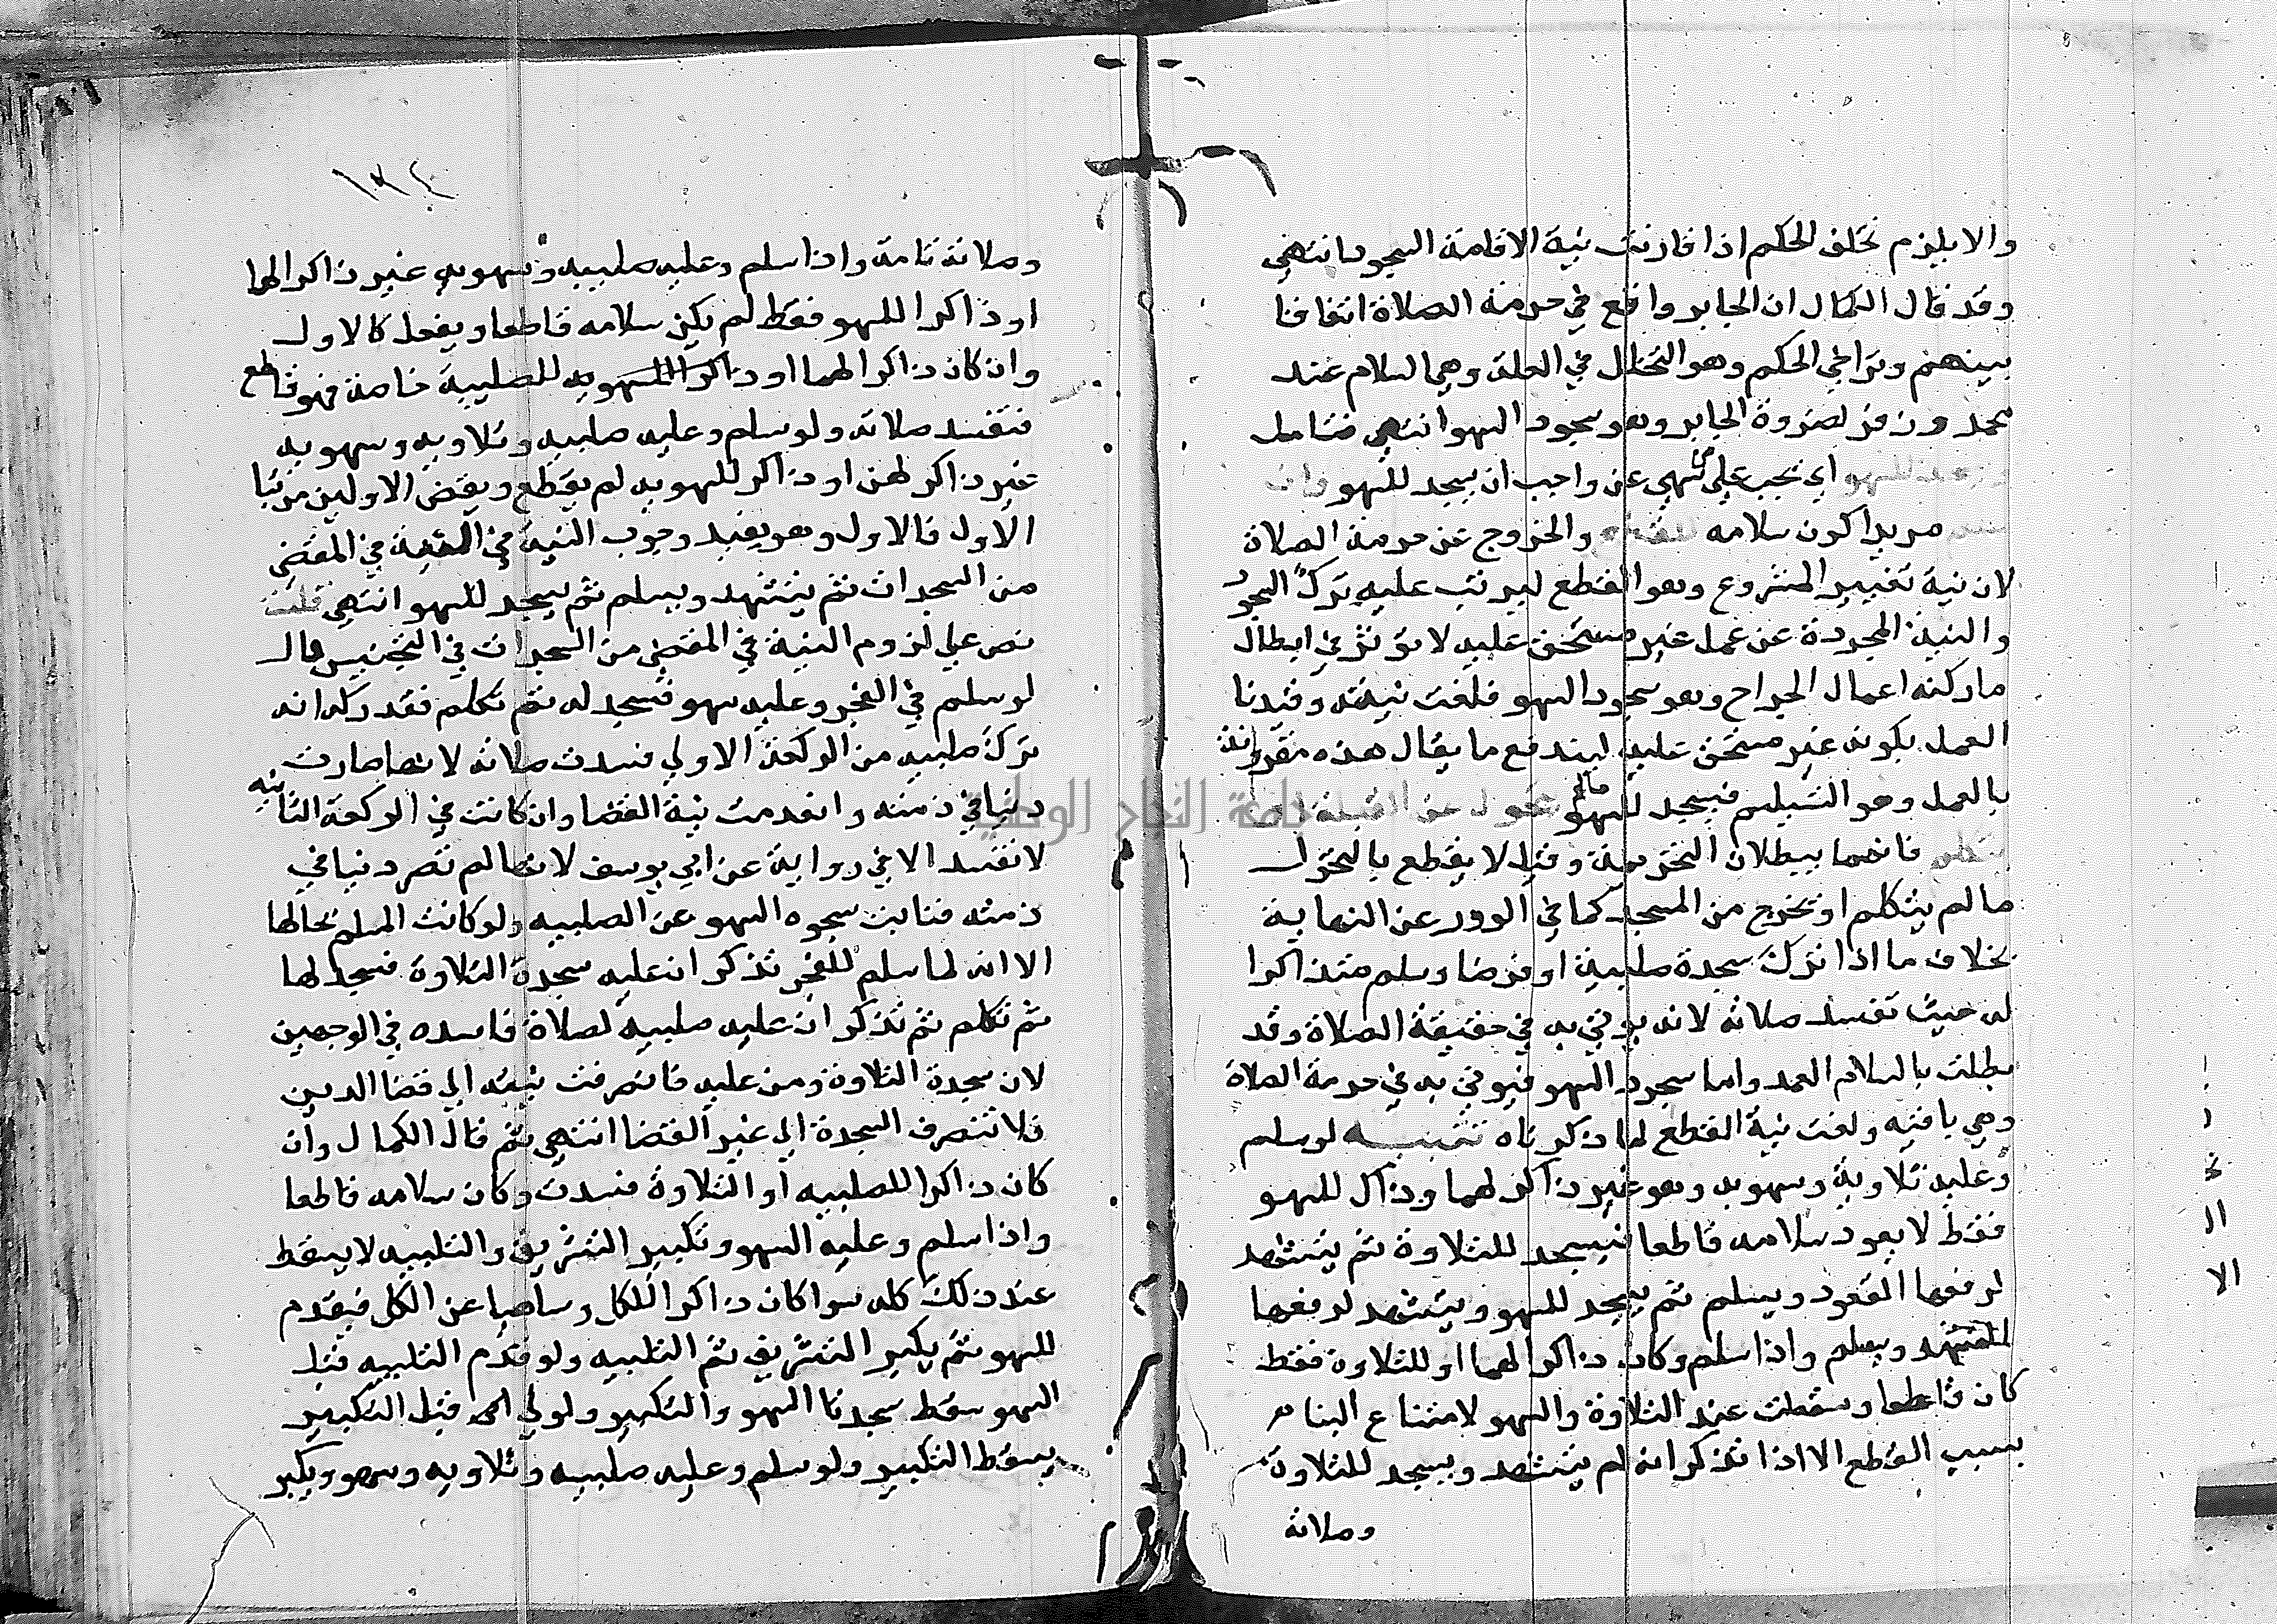 والا يلزم تخلف الحكم اذا قارنت نية الاقامة السجود انتهي
وقد قال الكمال ان الجابر واقع في حرمة الصلاة اتفاقا
بينهم وتراخي الحكم وهو التحلل في العلة وهي السلام عند
محمد وزفر لضرورة الجابر وهو سجود السهو انتهي فتامل
للسهو اي يجب علي من سهي عن واجب ان يسجد للسهو وان
مريدا كون سلامه للقطع والخروج عن حرمة الصلاة
لان نية تغيير المشروع وهو القطع ليرتب عليه ترك السجود
والنية المجردة عن عمل غير مستحق عليه لا توثر في ابطال
ما ركنه اعمال الجراح وهو سجود السهو فلغت نيته وقيدنا
العمل بكونه غير مستحق عليه ليندفع ما يقال هذه مقترنة
بالعمل وهو التسليم فيسجد للسهو مالم يتحول عن القبلة او
يتكلم فانهما يبطلان التحريمة وقيل لا يقطع بالتحول
ما لم يتكلم او يخرج من المسجد كما في الدرر عن النهاية
بخلاف ما اذا ترك سجدة صلبية او فرضا وسلم متذاكرا
له حيث تفسد صلاته لانه يوتي به في حقيقة الصلاة وقد
بطلت بالسلام العمد واما سجود السهو فيوتي به في حرمة الصلاة
وهي باقيه ولغت نية القطع لما ذكرناه تنبيه لو سلم
وعليه تلاوية وسهويه وهو غير ذاكر لهما وذاكر للسهو
فقط لا يعود سلامه قاطعا فيسجد للتلاوة ثم يتشهد
لرفعها القعود ويسلم ثم يسجد للسهو ويتشهد لرفعها
التشهد ويسلم واذا سلم وكان ذاكرا لهما او للتلاوة فقط
كان قاطعا وسقطت عنه التلاوة والسهو لامتناع البنا
بسبب القطع الا اذا تذكر انه لم يتشهد ويسجد للتلاوة
وصلاته
١٣٤
وصلاته تامة واذا سلم وعليه صلبيه وسهويه غير ذاكر لهما
او ذاكرا للسهو فقط لم يكن سلامه قاطعا ويفعل كالاول
وان كان ذاكرا لهما او ذاكرا للصلبية خاصة فهو قاطع
فتفسد صلاته ولو سلم وعليه صلبيه وتلاويه وسهويه
غير ذاكر لهن او ذاكر للسهويه لم يقطع ويقض الاوليين مرتبا
الاول فالاول وهو يفيد وجوب النية في المقضي
من السجدات ثم يتشهد ويسلم ثم يسجد للسهو انتهي قلت
نص علي لزوم النية في المقضي من السجدات في التجنيس قال
لو سلم في الفجر وعليه سهو فسجد له ثم تكلم فقد ذكر انه
ترك صلبيه من الركعة الاولي فسدت صلاته لانها صارت
دينا في ذمته وانعدمت نية القضا وان كانت في الركعة الثانيه
لا تفسد الا في رواية عن ابي يوسف لانها لم تصر دينا في
ذمته فنابت سجود السهو عن الصلبيه ولو كانت المسلم بحالها
الا انه لما سلم للفجر تذكر ان عليه سجدة التلاوة فسجد لها
ثم تكلم ثم تذكر ان عليه صلبيه لصلاة فاسده في الوجهين
لان سجدة التلاوة دين عليه فانصرفت نيته الي قضا الدين
فلا تنصرف السجدة الي غير القضا انتهي ثم قال الكمال وان
كان ذاكرا للصلبيه او التلاوة فسدت وكان سلامه قاطعا
واذا سلم وعليه السهو وتكبير التشريق والتلبيه لا يسقط
عنه ذلك كله سوا كان ذاكرا للكل وساهيا عن الكل فيقدم
للسهو ثم يكبر التشريق ثم التلبيه ولو قدم التلبيه قبل
السهو سقط سجدتا السهو والتكبير ولو لبي قبل التكبير
يسقط التكبير ولو سلم وعليه صلبيه وتلاويه وسهو ويكبر
جامعة النجاح الوطنية